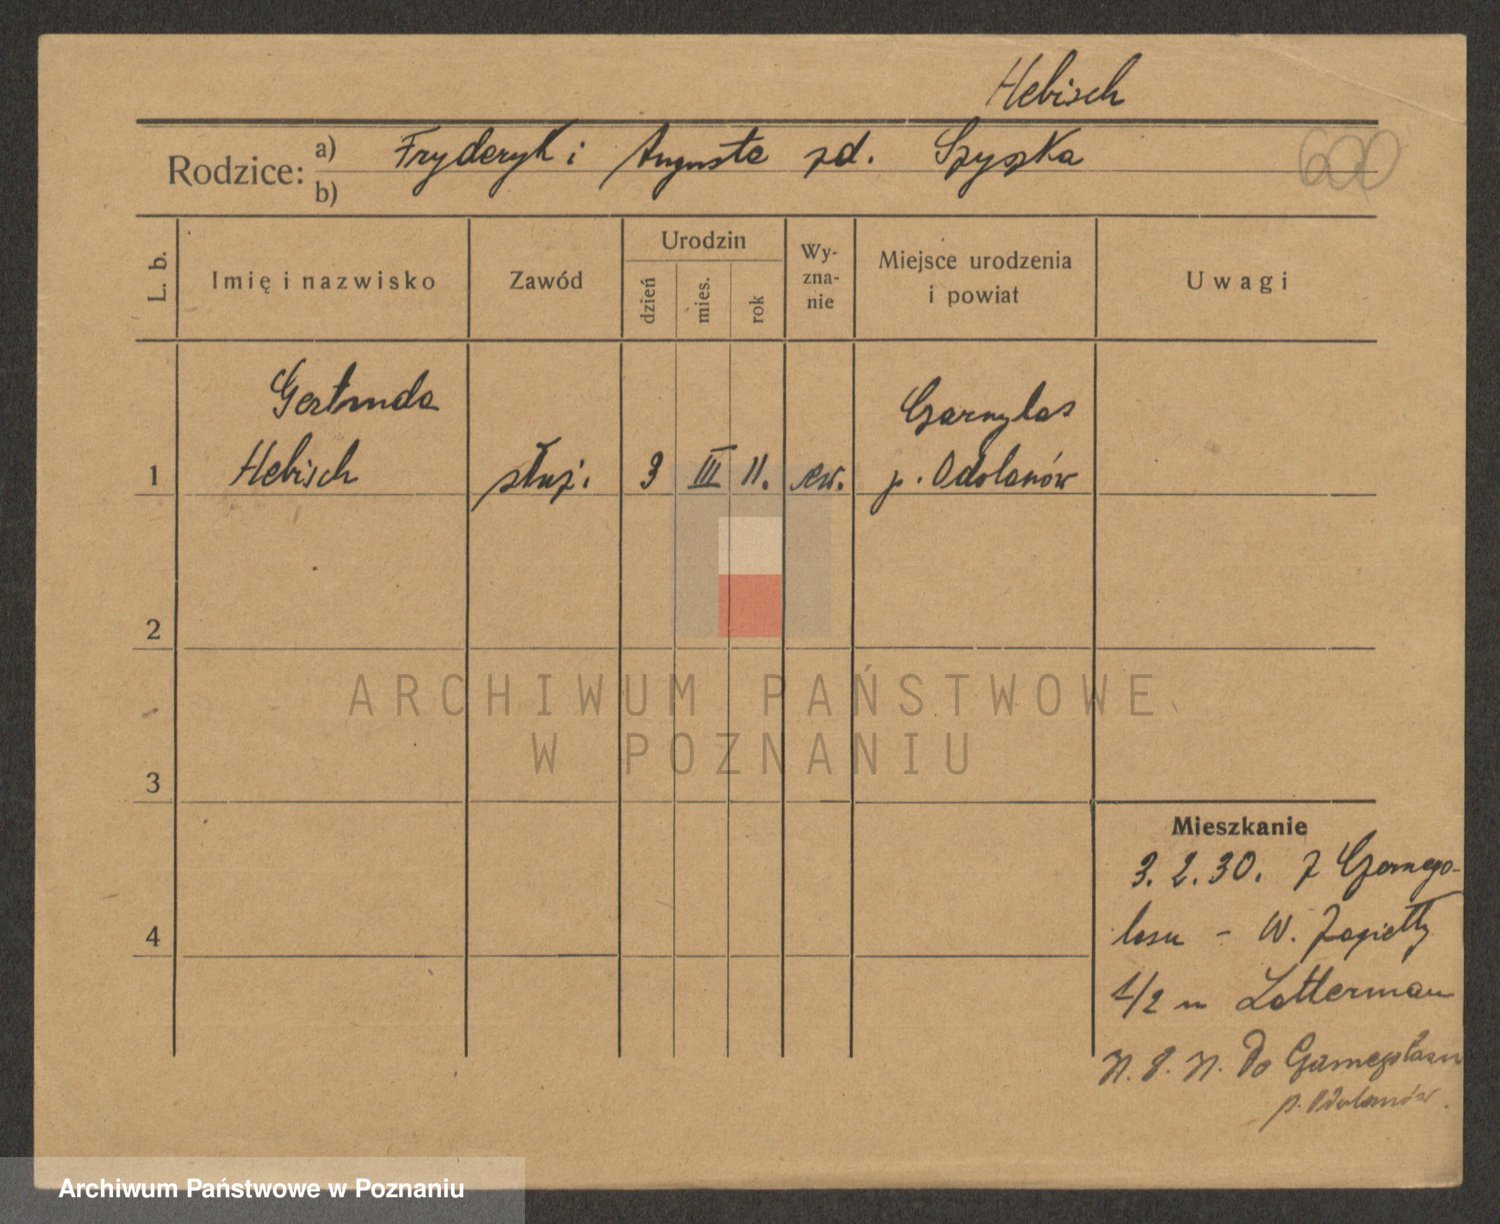 Hebisch
Rodzice: a) Fryderyk i Augusta zd. Szyszka
b)
600
L. b.
Imię i nazwisko
Zawód
Urodzin
dzień
mies.
rok
Wy-
zna-
nie
Miejsce urodzenia
i powiat
Uwagi
1
Gertruda
Hebisch
służ.
3
III
11.
ew.
Czarnylas
p. Odolanów
2
3
4
ARCHIWUM PAŃSTWOWE
W POZNANIU
Mieszkanie
3. 2. 30. z Czarnego-
lasu - W. Jagiełły
1/2 u Latterman
Do Czarnegolasu
p. Odolanów.
Archiwum Państwowe w Poznaniu